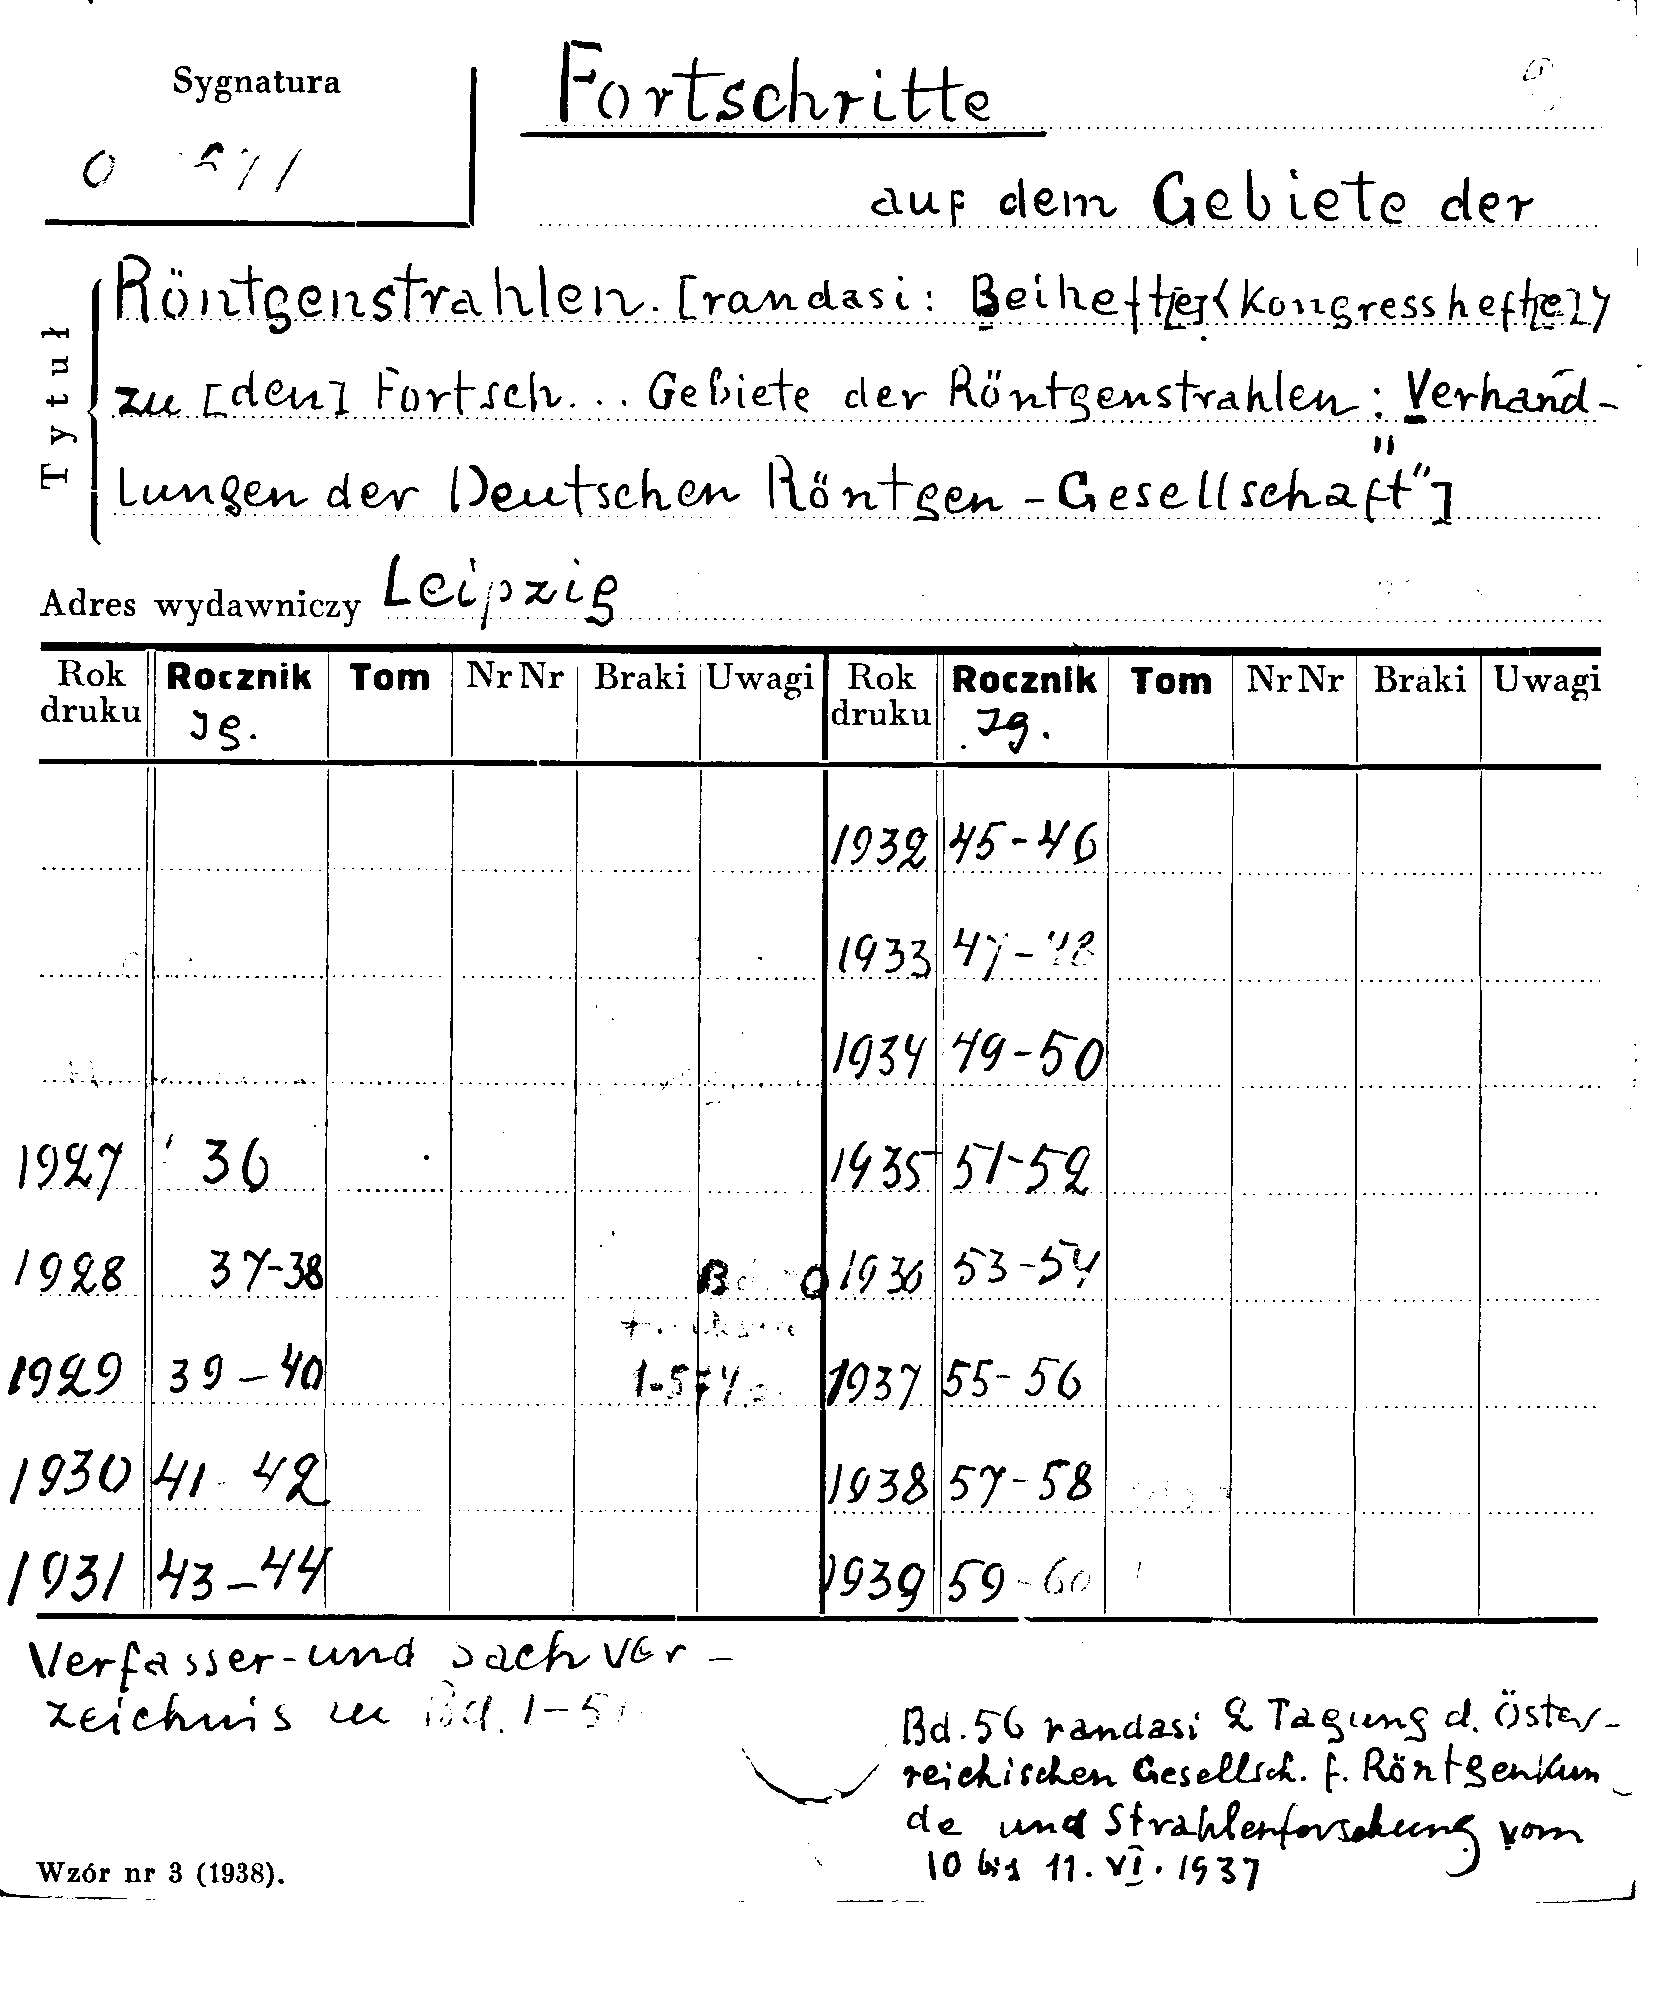 Sygnatura
Fortschritte
auf dem Gebiete der
Tytuł
Röntgenstrahlen. [randasi: Beihefte[r] <Kongresshefte]>
zu [den] Fortsch... Gebiete der Röntgenstrahlen: Verhand-
lungen der Deutschen Röntgen-Gesellschaft"]
Adres wydawniczy Leipzig
Rok druku Rocznik Tom Nr Nr Braki Uwagi Rok druku Rocznik Tom Nr Nr Braki Uwagi
Jg. Jg.
1932 45-46
1933 47-48
1934 49-50
1927 36 1935 51-52
1928 37-38 1936 53-54
1929 39-40 1937 55-56
1930 41 42 1938 57-58
1931 43-44 1939 59-60
Verfasser-und Sachver-
zeichnis zu Bd. 1-
Bd. 56 randasi 2 Tagung d. Öster-
reichischen Gesellsch. f. Röntgenkun-
de und Strahlenforschung vom
10 bis 11. VI. 1937
Wzór nr 3 (1938).